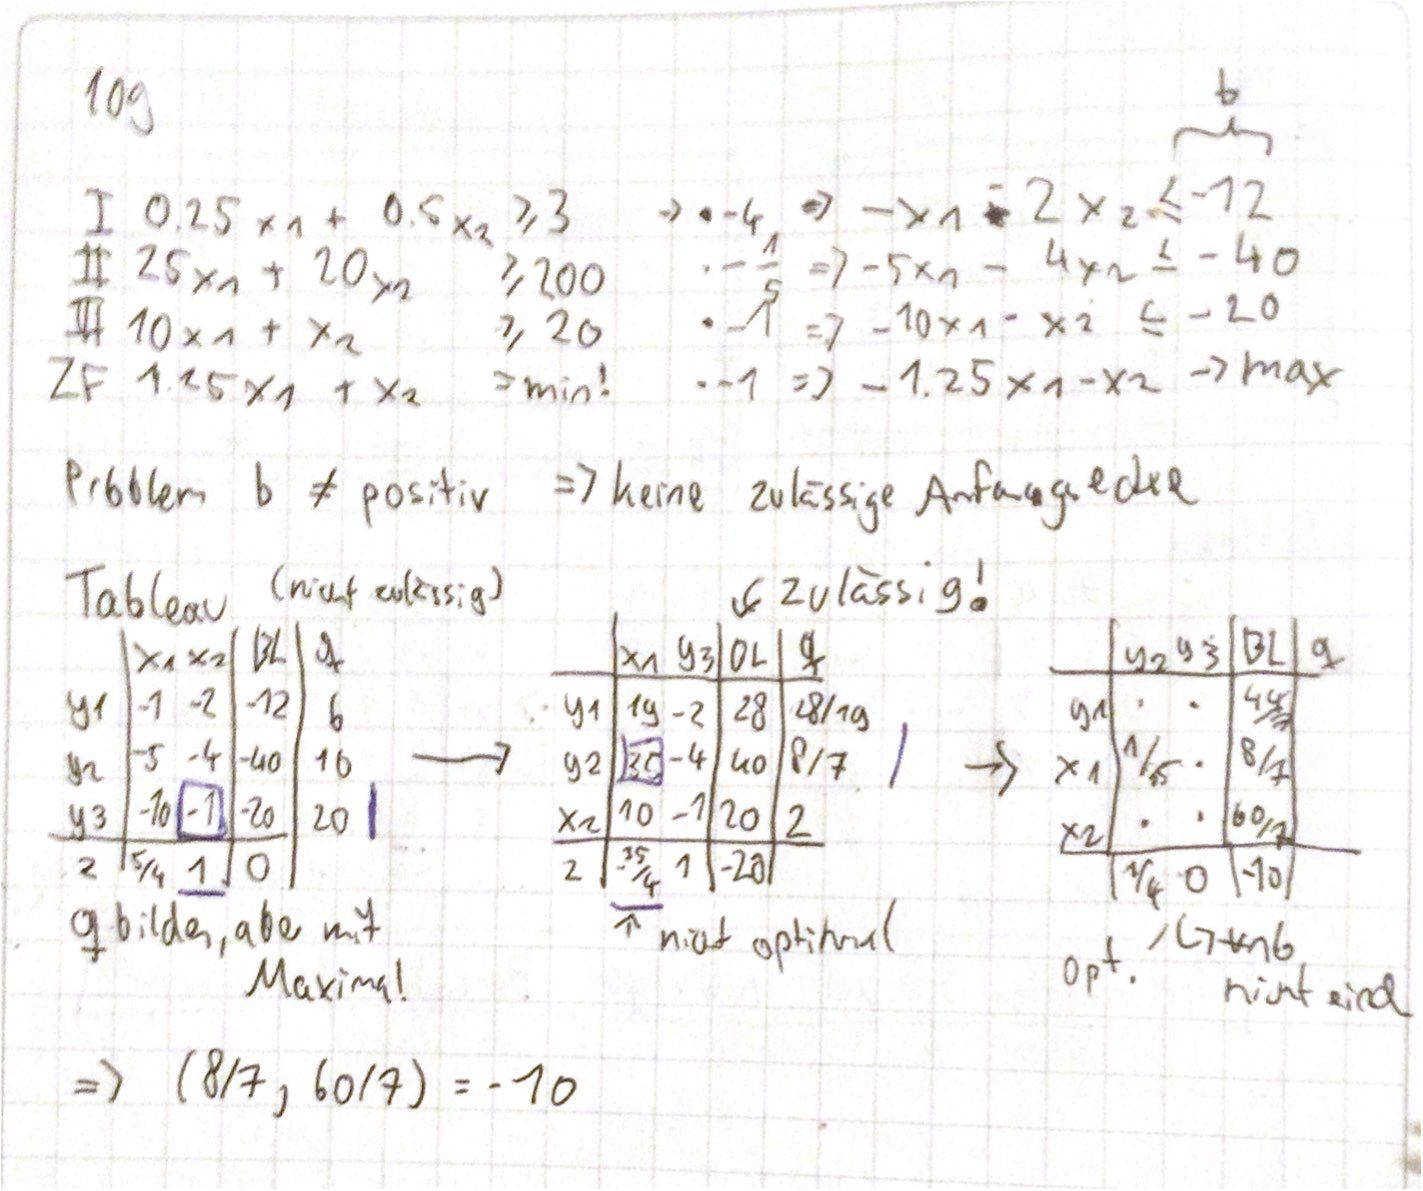 10g
b
I 0.25 x1 + 0.5 x2 ≥ 3 → · -4 => -x1 - 2 x2 ≤ -12
II 25x1 + 20x2 ≥ 200 · -1/5 => -5x1 - 4x2 ≤ -40
III 10x1 + x2 ≥ 20 · -1 => -10x1 - x2 ≤ -20
ZF 1.25x1 + x2 = min! · -1 => -1.25x1 - x2 -> max
Problem b ≠ positiv => keine zulässige Anfangsecke
Tableau (nicht zulässig) ↙ zulässig!
x1 x2 BL q
y1 -1 -2 -12 6
y2 -5 -4 -40 10
y3 -10 -1 -20 20
z 5/4 1 0
q bilden, aber mit
Maxima!
→
x1 y3 BL q
y1 19 -2 28 28/19
y2 35 -4 40 8/7
x2 10 -1 20 2
z -35/4 1 -20
↑ nicht optimal
→
y2 y3 BL q
y1 · · 44/7
x1 1/35 · 8/7
x2 · · 60/7
z 1/4 0 -10
opt.
nicht eind
=> (8/7, 60/7) = -10